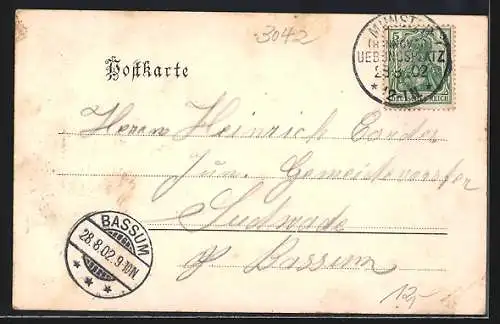 3042
MUNSTER
UEBUNGSPLATZ
28.8.02
* 12-1N.
5
DEUTSCHES REICH
Postkarte
Herrn Heinrich
Zum Gemeindevorsteher
Sudwalde
BASSUM
28.8.02.9-10N
* * *
p Bassum
12,-